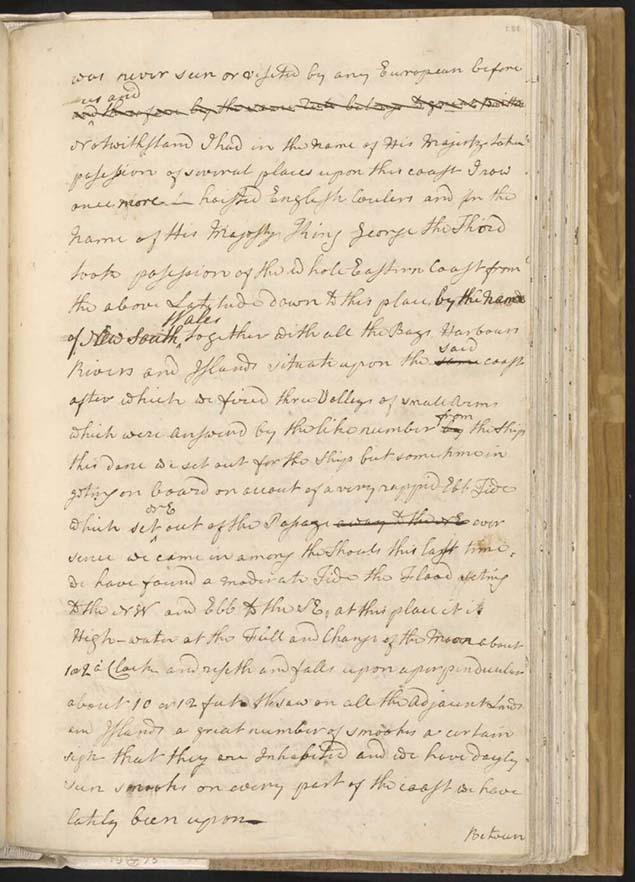 was never seen or visited by any European before
us and
and therefore by the same Rule belongs to great Brittan
Notwithstand I had in the Name of His Majesty taken
possession of several places upon this coast I now
once more hoisted English Coulers and in the
Name of His Majesty King George the Third
took posession of the whole Eastern Coast from
the above Latitude down to this place by the name
of New South
Wales
together with all the Bays, Harbours
Rivers and Islands situate upon the
said
same coast
after which we fired three Volleys of small Arms
which were Answerd by the like number
from
by the Ship
this done we set out for the Ship but some time in
geting on board on accout of a very rappid Ebb Tide
which set
NE
out of the Passage away to the NE ever
sence we came in among the Shoals this last time,
we have found a moderate Tide the Flood seting
to the NW and Ebb to the SE, at this place it is
High-water at the Full and Change of the Moon about
1 or 2 oClock and riseth and falls upon a perpendicular
about 10 or 12 feet We saw on all the Adjacent Lands
and Islands a great number of smooks a certain
sign that they are Inhabited and we have dayly
seen smooks on every part of the coast we have
lately been upon
Between